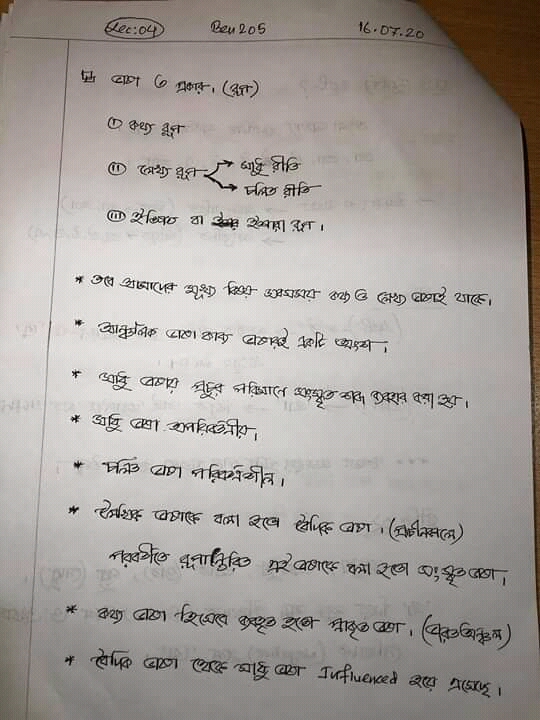 Lec:04 Ben 205 16.07.20
ভাষা ৩ প্রকার। (রূপ)
i) কথ্য রূপ
ii) লেখ্য রূপ → সাধু রীতি
→ চলিত রীতি
iii) ইঙ্গিত বা ইশারা রূপ।
* তবে আমাদের মুখ্য বিষয় সবসময় কথ্য ও লেখ্য ভাষাই থাকে।
* আঞ্চলিক ভাষা কথ্য ভাষারই একটি অংশ।
* সাধু ভাষায় প্রচুর পরিমাণে সংস্কৃত শব্দ ব্যবহার করা হয়।
* সাধু ভাষা অপরিবর্তনীয়।
* চলিত ভাষা পরিবর্তনশীল।
* লৈখিক ভাষাকে বলা হতো বৈদিক ভাষা। (প্রাচীনকালে)
পরবর্তীতে রূপান্তরিত এই ভাষাকে বলা হতো সংস্কৃত ভাষা।
* কথ্য ভাষা হিসেবে ব্যবহৃত হতো প্রাকৃত ভাষা।
* বৈদিক ভাষা থেকে সাধু ভাষা Influenced হয়ে এসেছে।